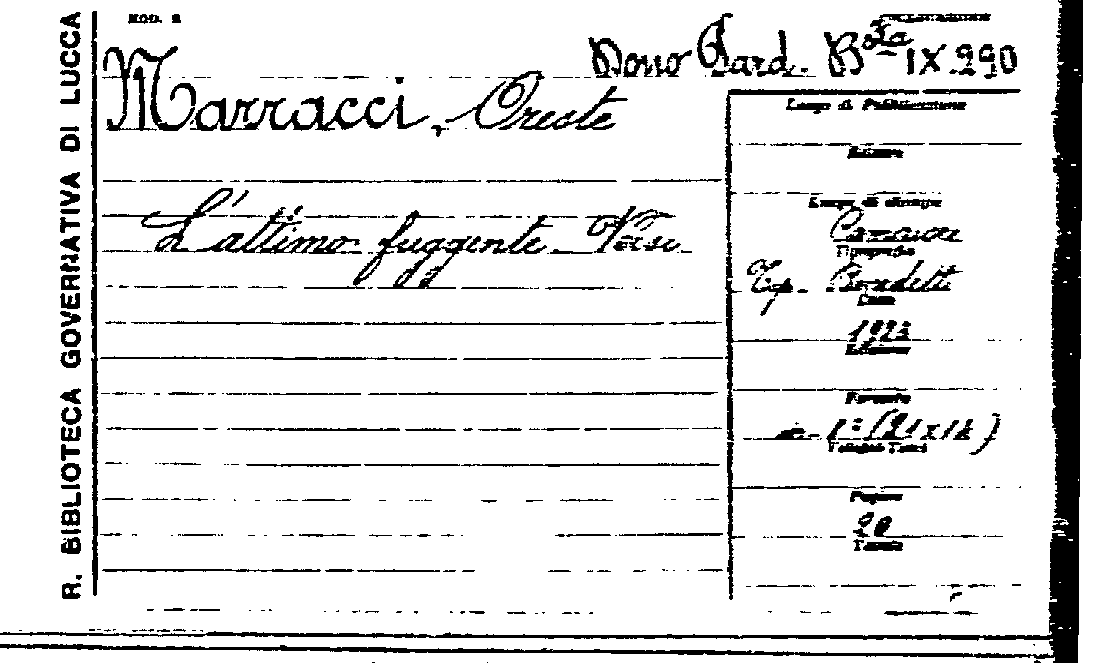 R. BIBLIOTECA GOVERNATIVA DI LUCCA
MOD. 2
Dono Pard. Bta IX.290
Marracci, Oreste
L'attimo fuggente. Versi
Luogo di Pubblicazione
Editore
Luogo di stampa
Camaiore
Tipografia
Tip. Benedetti
Data
1923
Edizione
Formato
1° (21x14)
Pagine
20
Tavole